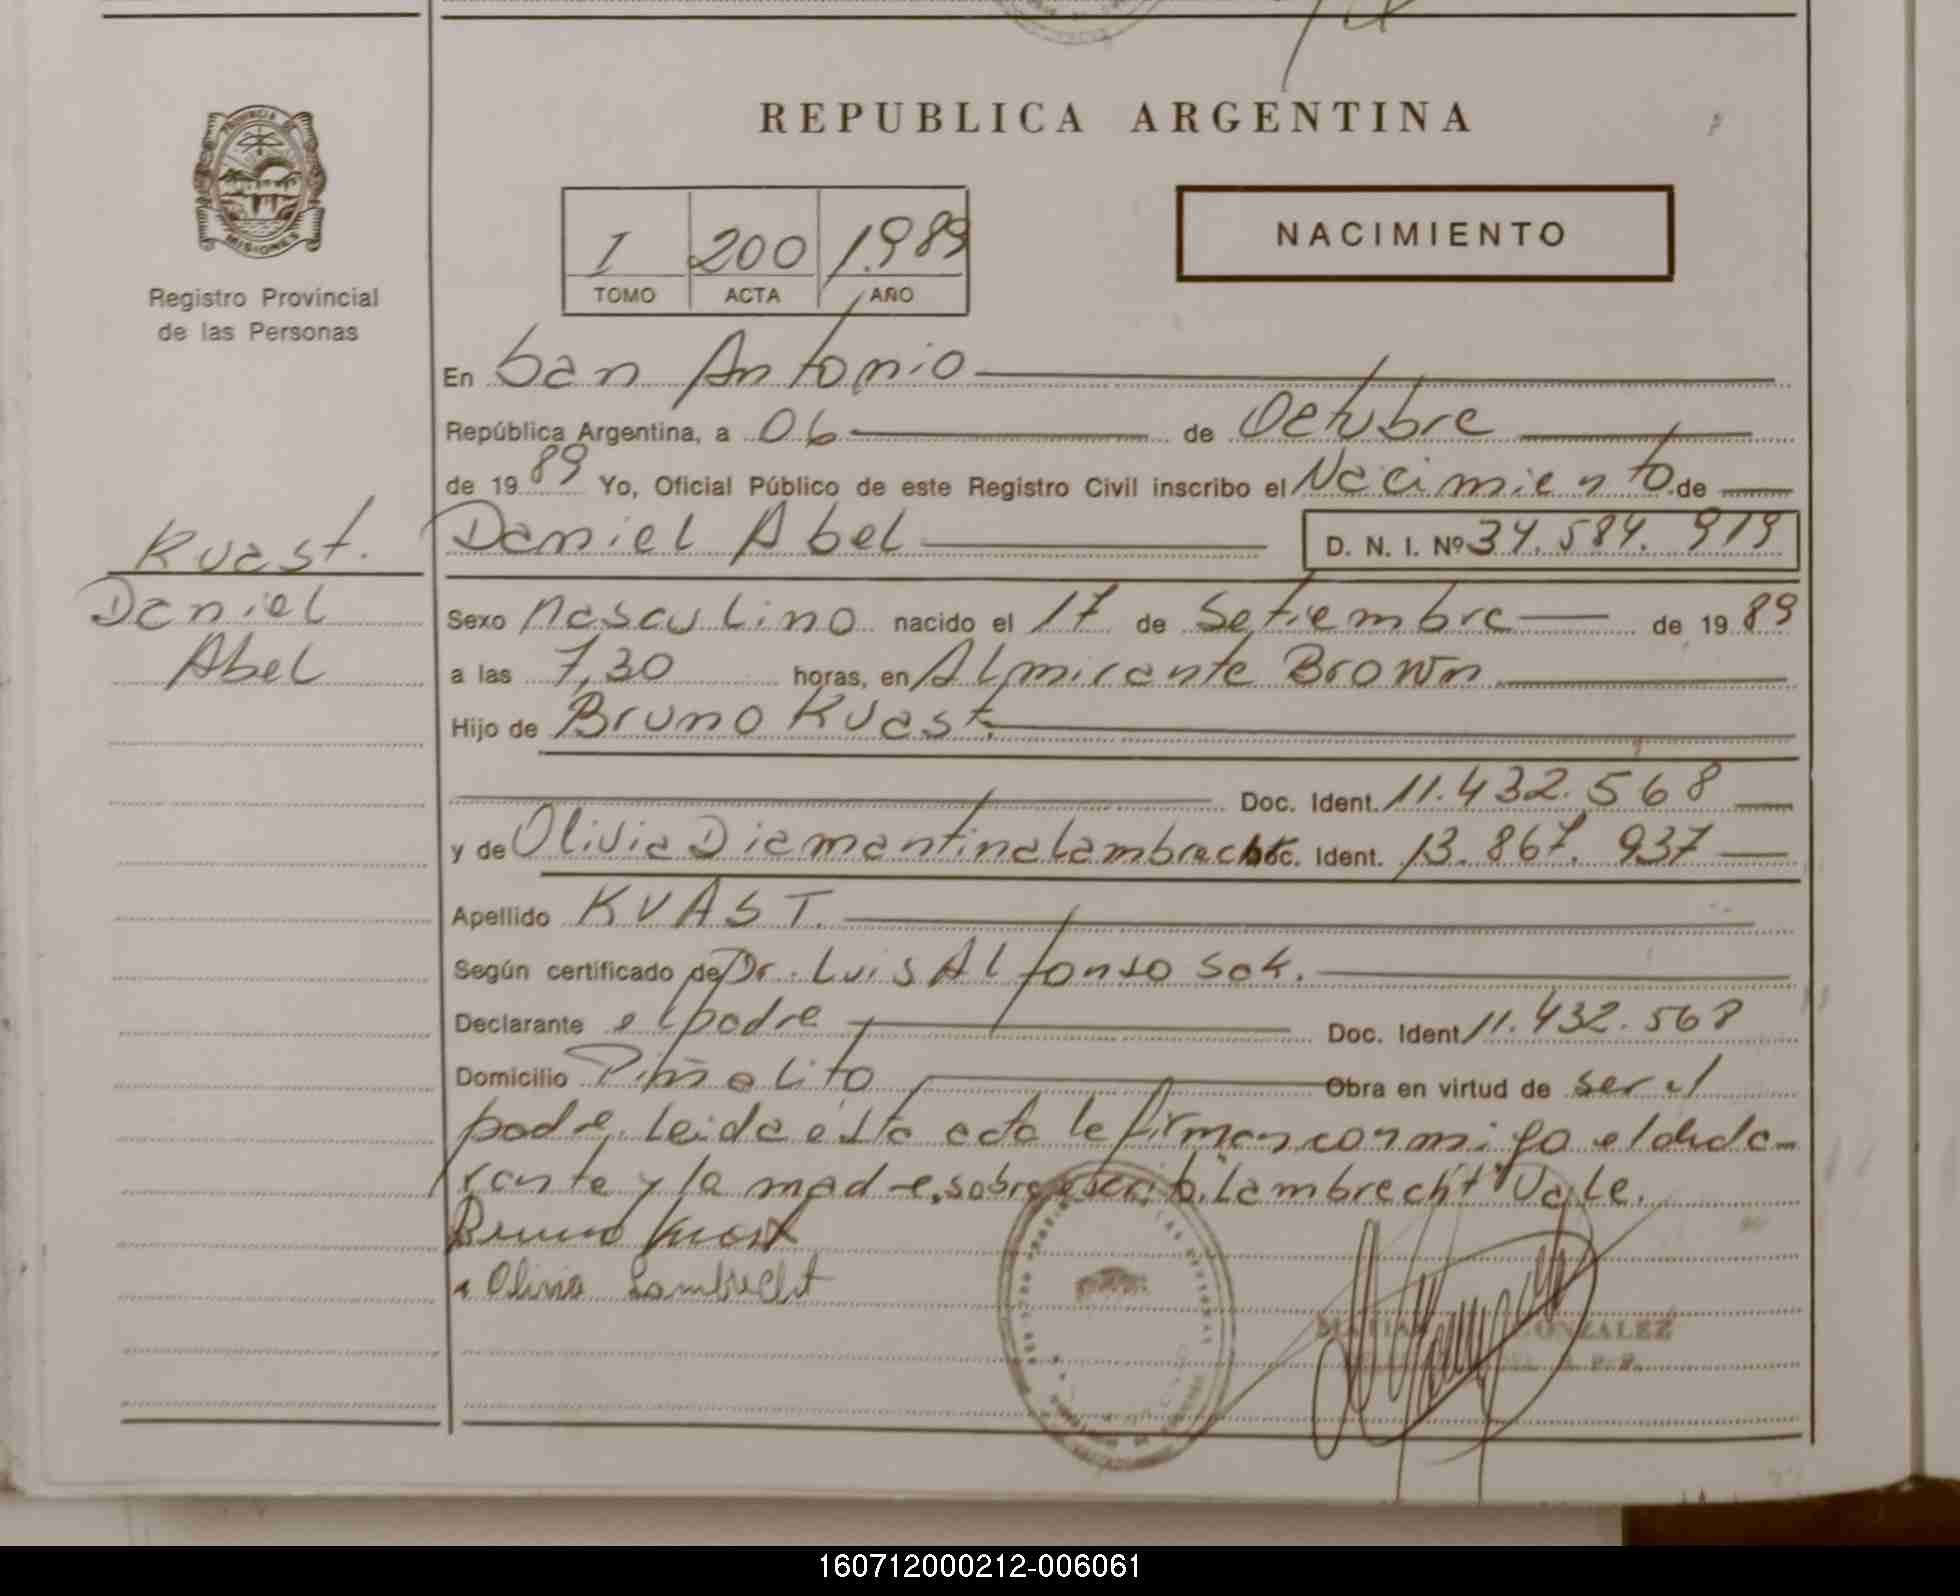 REPUBLICA ARGENTINA
PROVINCIA DE
MISIONES
Registro Provincial
de las Personas
NACIMIENTO
I 200 1.989
TOMO ACTA AÑO
En San Antonio
República Argentina, a 06 de Octubre
de 1989 Yo, Oficial Público de este Registro Civil inscribo el Nacimiento de
Daniel Abel D. N. I. Nº 34.584.919
Kuast.
Daniel
Abel
Sexo Masculino nacido el 17 de Setiembre de 1989
a las 7,30 horas, en Almirante Brown
Hijo de Bruno Kuast.
Doc. Ident. 11.432.568
y de Olivia Diamantina Lambrecht Doc. Ident. 13.867.937
Apellido KUAST.
Según certificado de Dr. Luis Alfonso Sok.
Declarante el padre Doc. Ident 11.432.568
Domicilio Piñalito Obra en virtud de ser el
padre. Leida esta acta le firman conmigo el decla-
rante y la madre, sobreescrib. Lambrecht" Vale.
Bruno Kuast
Olivia Lambrecht
GONZALEZ
160712000212-006061